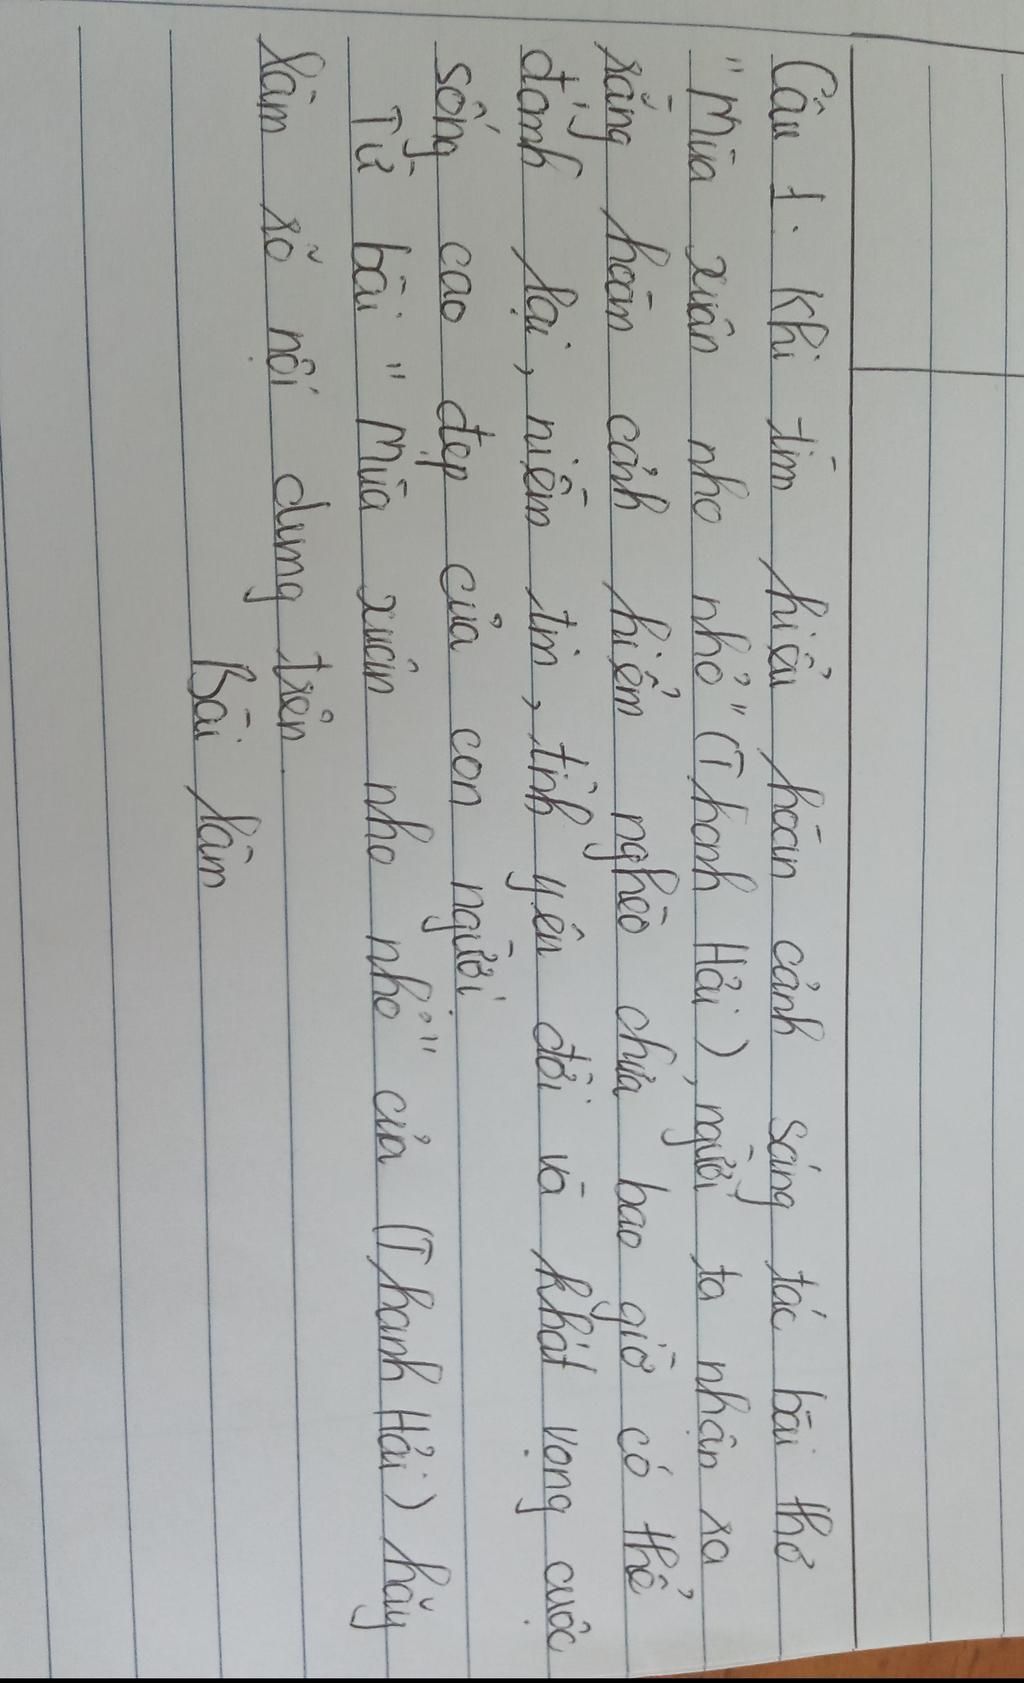 Câu 1. Khi tìm hiểu hoàn cảnh sáng tác bài thơ
"Mùa xuân nho nhỏ" (Thanh Hải), người ta nhận ra
rằng hoàn cảnh hiểm nghèo chưa bao giờ có thể
đánh lại, niềm tin, tình yêu đời và khát vọng cuộc
sống cao đẹp của con người.
Từ bài "Mùa xuân nho nhỏ" của (Thanh Hải) hãy
làm rõ nội dung trên
Bài làm